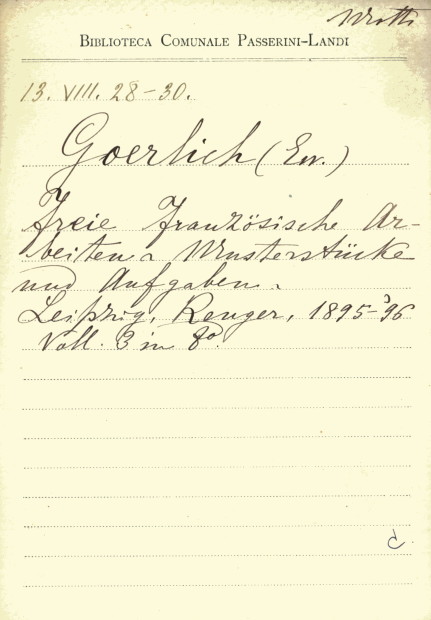 BIBLIOTECA COMUNALE PASSERINI-LANDI
13. VIII. 28-30.
Goerlich (Ew.)
Freie Französische Ar-
beiten. Musterstücke
und Aufgaben.
Leipzig, Renger, 1895-'96
Voll. 3 in 8º.
C.